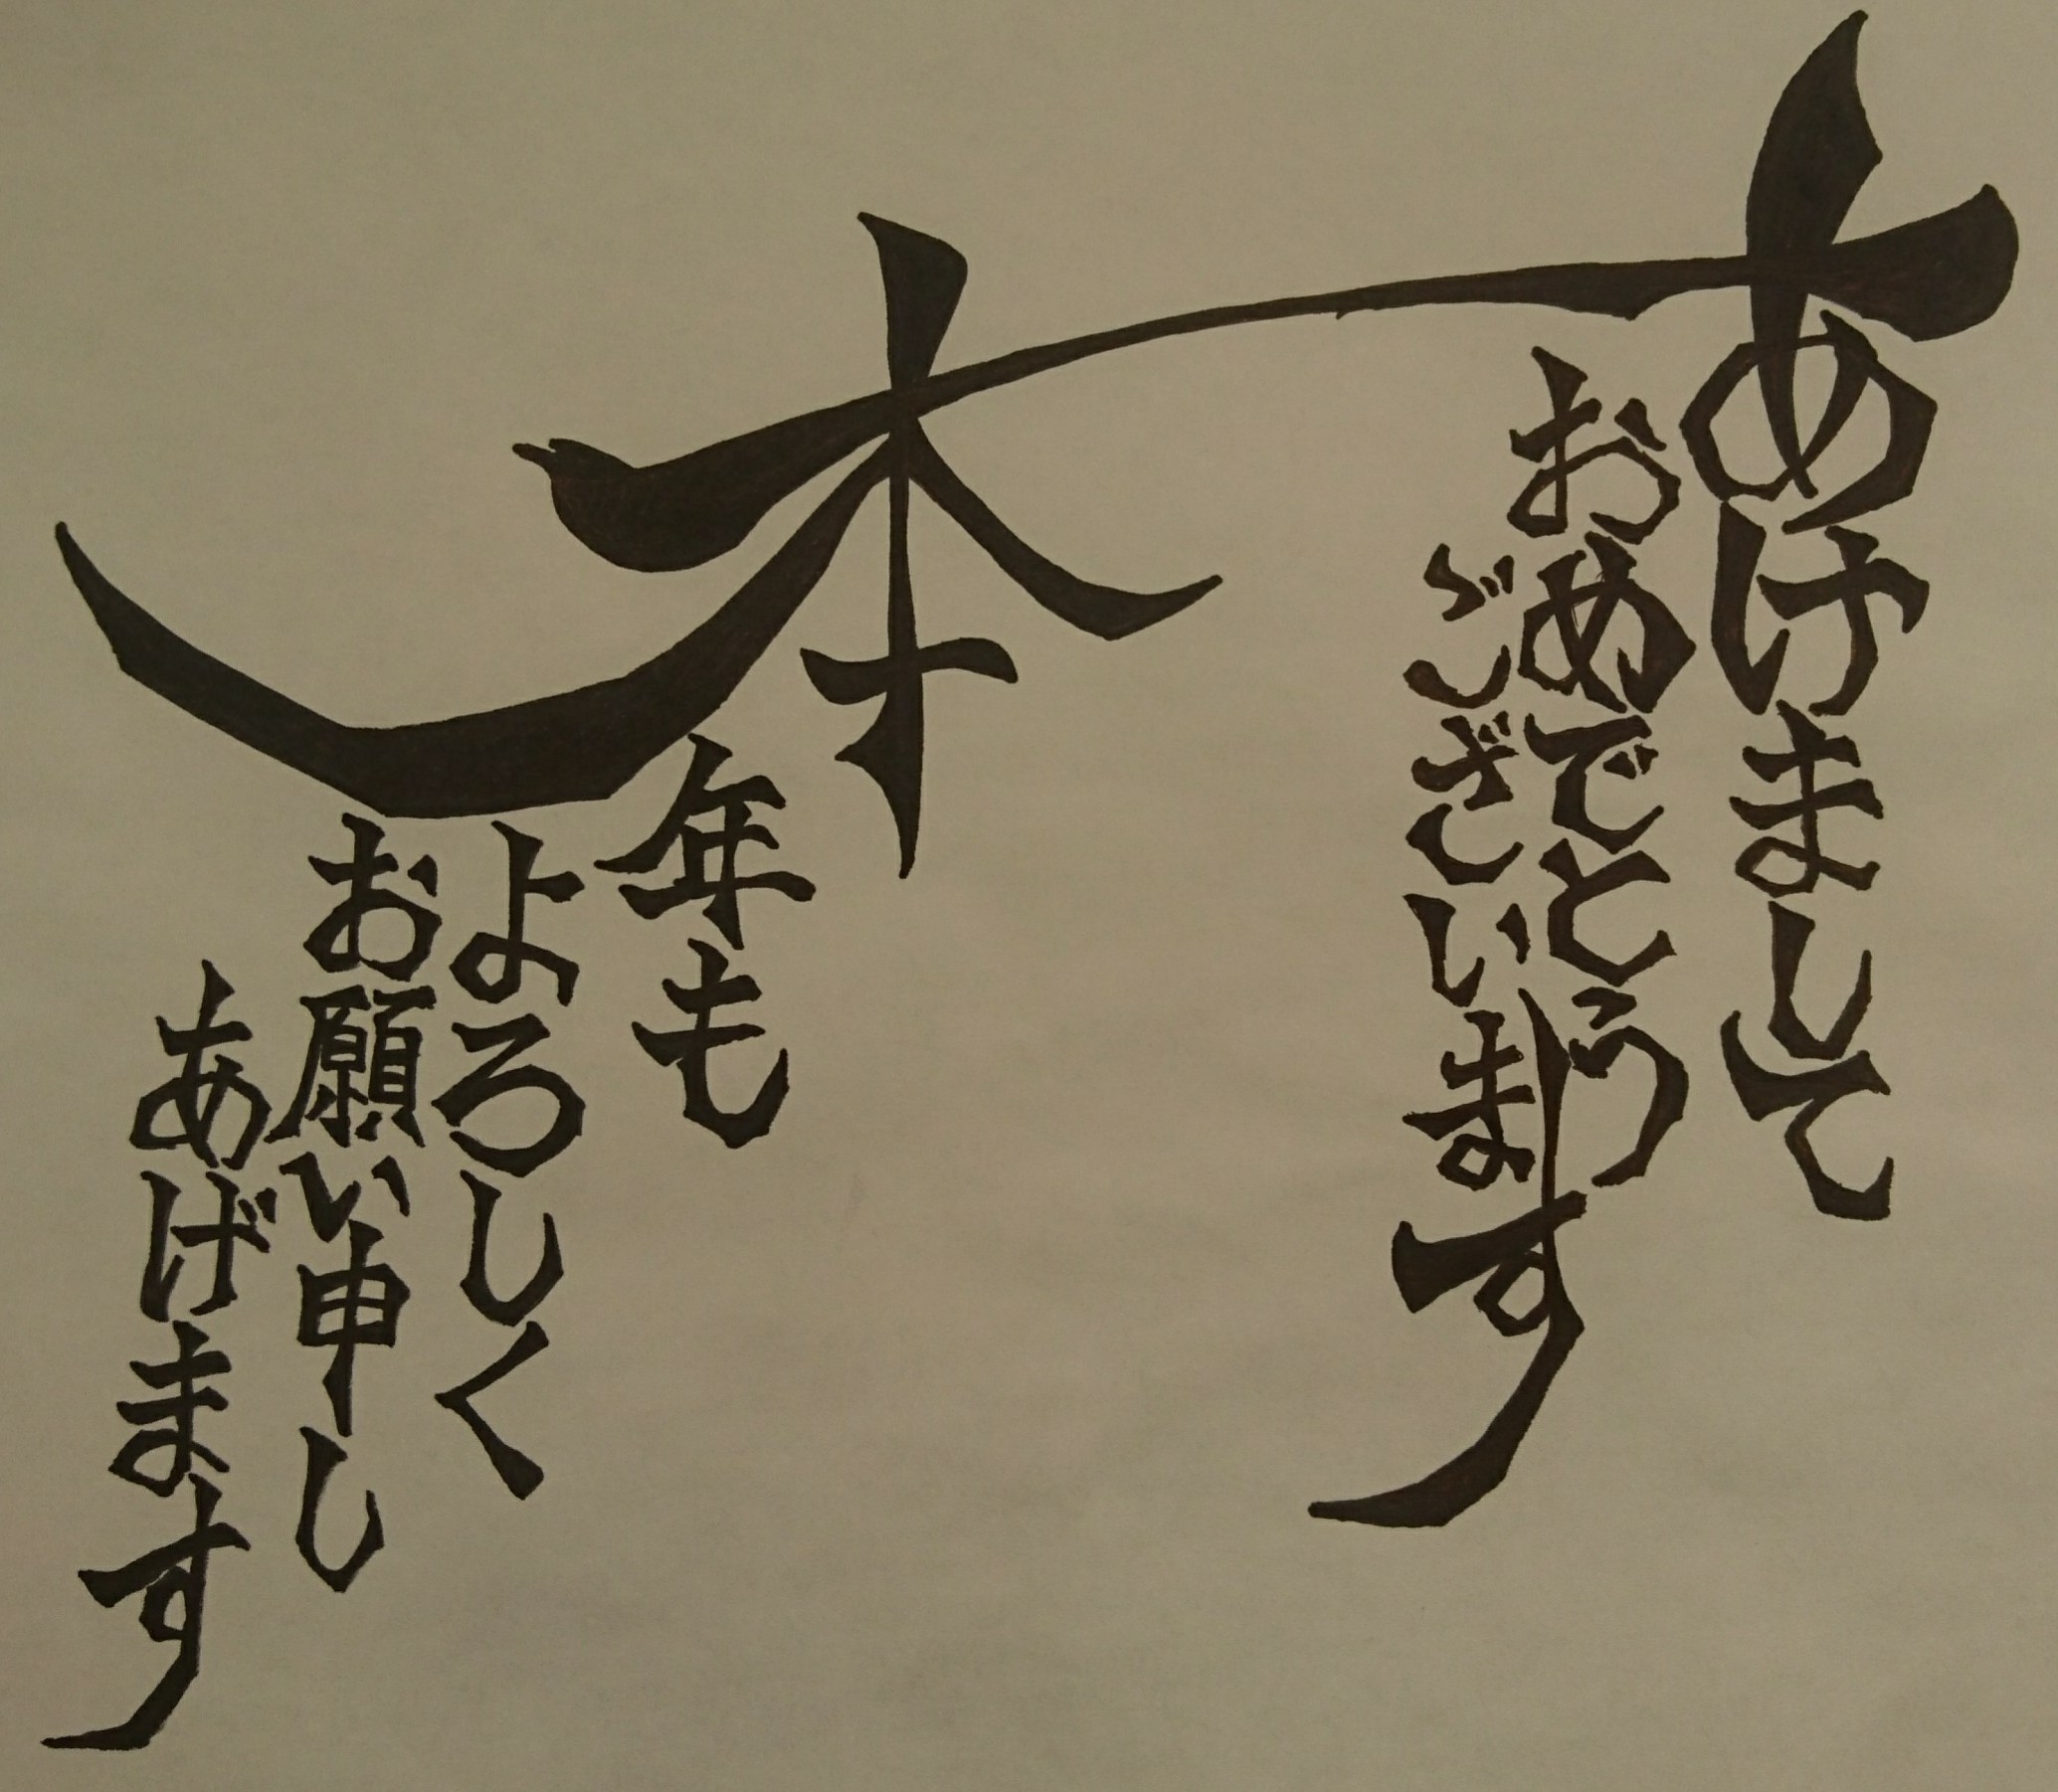 あけまして
おめでとう
ございます
本年も
よろしく
お願い申し
あげます